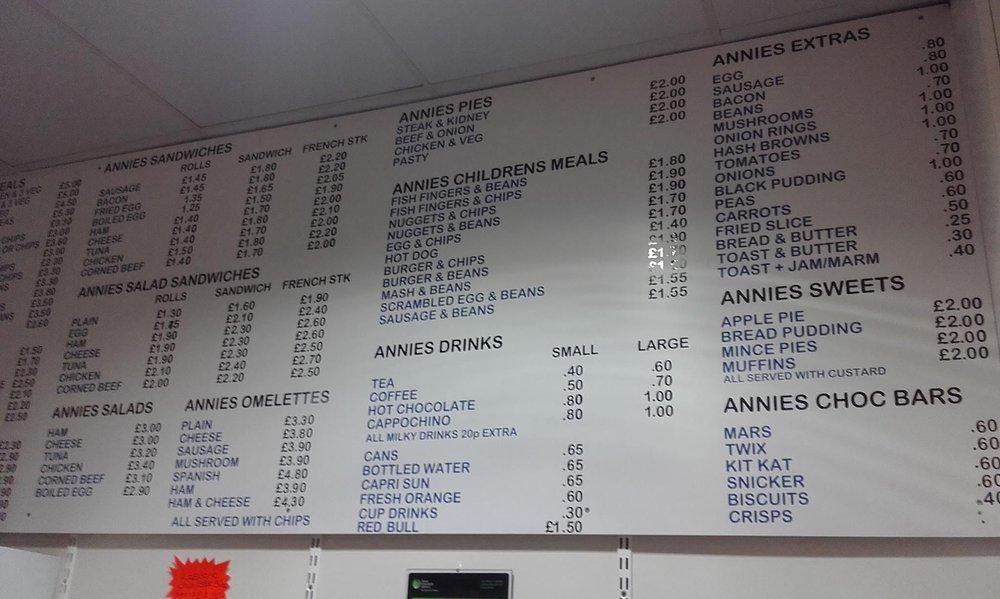 EALS
EN & 3 VEG £5.00
& 3 VEG £5.00
CHIPS
OR CHIPS
ANNIES SANDWICHES
ROLLS SANDWICH FRENCH STK
SAUSAGE £1.45 £1.80 £2.20
BACON £1.45 £1.80 £2.20
FRIED EGG 1.35 £1.65 £2.05
BOILED EGG 1.25 £1.50 £1.90
HAM £1.40 £1.70 £2.00
CHEESE £1.40 £1.80 £2.10
TUNA £1.40 £1.70 £2.00
CHICKEN £1.50 £1.80 £2.20
CORNED BEEF £1.40 £1.70 £2.00
ANNIES SALAD SANDWICHES
ROLLS SANDWICH FRENCH STK
PLAIN £1.30 £1.60 £1.90
EGG £1.85 £2.10 £2.40
HAM £1.90 £2.30 £2.60
CHEESE £1.90 £2.30 £2.60
TUNA £1.90 £2.30 £2.50
CHICKEN £2.10 £2.40 £2.70
CORNED BEEF £2.00 £2.20 £2.50
ANNIES SALADS
HAM £3.00
CHEESE £3.00
TUNA £3.20
CHICKEN £3.40
CORNED BEEF £3.10
BOILED EGG £2.90
ANNIES OMELETTES
PLAIN £3.30
CHEESE £3.80
SAUSAGE £3.90
MUSHROOM £3.90
SPANISH £4.80
HAM £3.90
HAM & CHEESE £4.30
ALL SERVED WITH CHIPS
ANNIES PIES
STEAK & KIDNEY £2.00
BEEF & ONION £2.00
CHICKEN & VEG £2.00
PASTY £2.00
ANNIES CHILDRENS MEALS
FISH FINGERS & BEANS £1.80
FISH FINGERS & CHIPS £1.90
NUGGETS & CHIPS £1.90
NUGGETS & BEANS £1.70
EGG & CHIPS £1.70
HOT DOG £1.40
BURGER & CHIPS £1.90
BURGER & BEANS
MASH & BEANS
SCRAMBLED EGG & BEANS £1.55
SAUSAGE & BEANS £1.55
ANNIES DRINKS
SMALL LARGE
TEA .40 .60
COFFEE .50 .70
HOT CHOCOLATE .80 1.00
CAPPOCHINO .80 1.00
ALL MILKY DRINKS 20p EXTRA
CANS .65
BOTTLED WATER .65
CAPRI SUN .65
FRESH ORANGE .60
CUP DRINKS .30
RED BULL £1.50
ANNIES EXTRAS
EGG .80
SAUSAGE .80
BACON 1.00
BEANS .70
MUSHROOMS 1.00
ONION RINGS 1.00
HASH BROWNS 1.00
TOMATOES .70
ONIONS .70
BLACK PUDDING 1.00
PEAS .60
CARROTS .60
FRIED SLICE .50
BREAD & BUTTER .25
TOAST & BUTTER .30
TOAST + JAM/MARM .40
ANNIES SWEETS
APPLE PIE £2.00
BREAD PUDDING £2.00
MINCE PIES £2.00
MUFFINS £2.00
ALL SERVED WITH CUSTARD
ANNIES CHOC BARS
MARS .60
TWIX .60
KIT KAT .60
SNICKER .60
BISCUITS .40
CRISPS